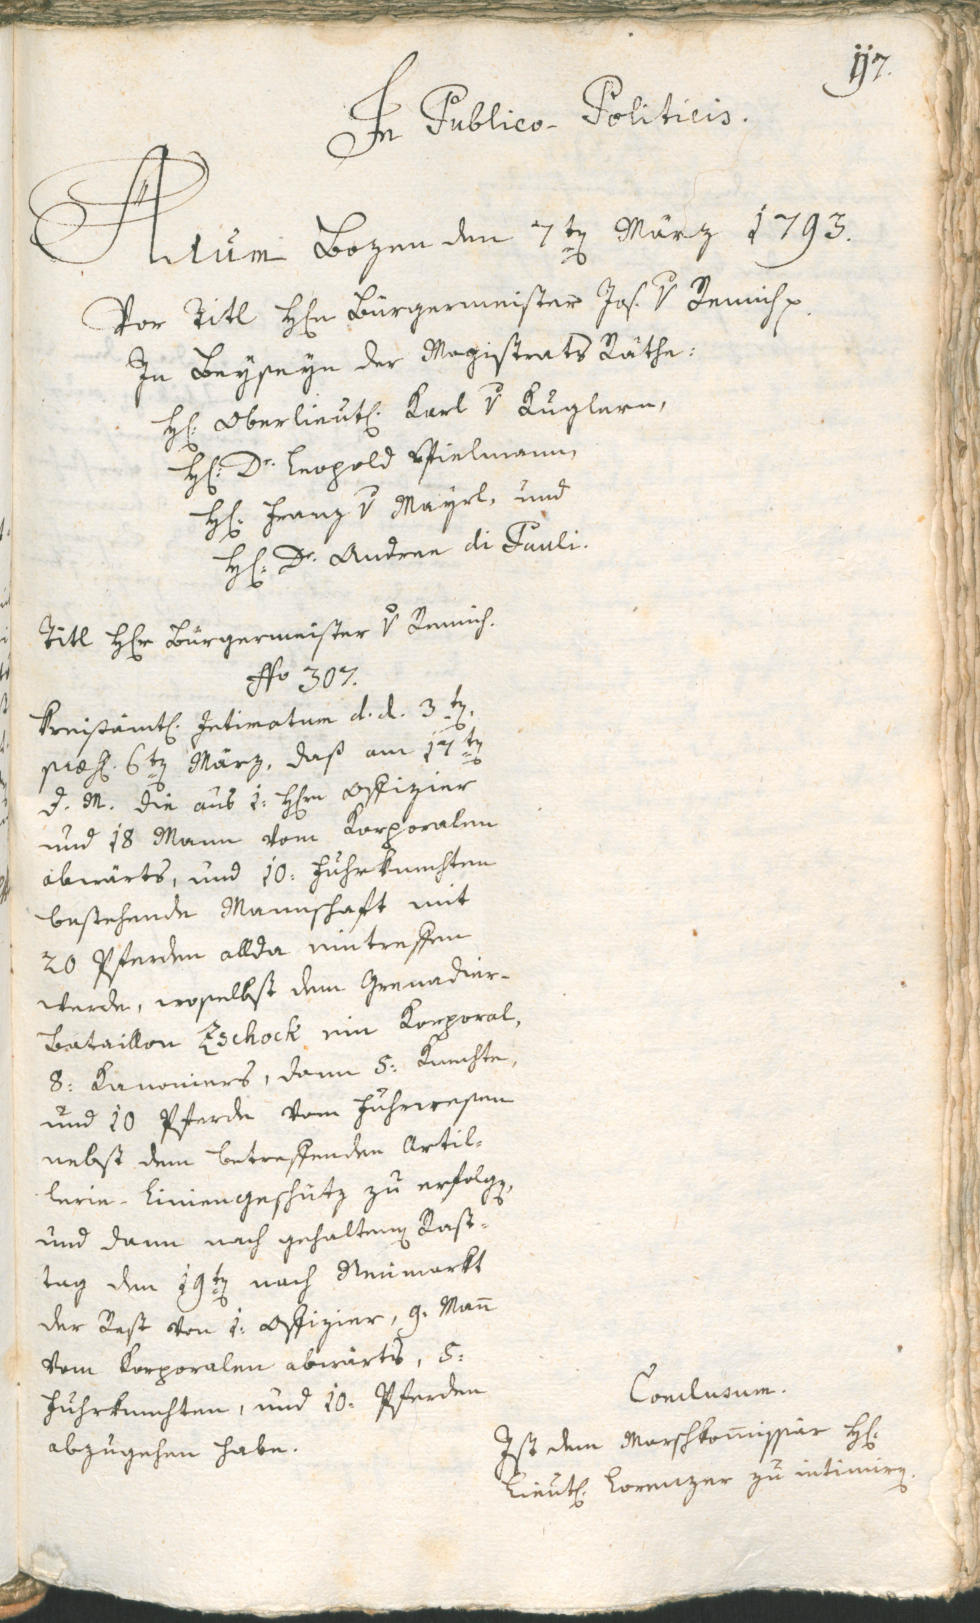 117.
In Publico-Politicis.
Actum Bozen den 7ten März 1793.
Vor Titl Hhn Bürgermeister Jos. v Remich p.
In Beyseyn der Magistrats Räthe:
H: Oberlieut: Karl v Kuglern,
H: Dr. Leopold Vielmann,
H: Franz v Mayrl, und
H: Dr. Andree di Pauli.
Titl Hhr Bürgermeister v Remich.
No 307.
Kreißämtl. Intimatum d. d. 3ten,
præs. 6ten März, daß am 17ten
d. M. die aus 1: Hhrn Offizier
und 18 Mann vom Korporalen
abwärts, und 10: Fuhrknechten
bestehende Mannschaft mit
20 Pferden allda eintreffen
werde, woselbst dem Grenadier-
Bataillon Zschock ein Korporal,
8: Kanoniers, dann 5: Knechte,
und 10 Pferde vom Fuhrwesen
nebst dem betreffenden Artil-
lerie-Liniengeschütz zu erfolgen,
und dann nach gehaltenen Rast-
tag den 19ten nach Neumarkt
der Rest von 1: Offizier, 9. Mann
vom Korporalen abwärts, 5:
Fuhrknechten, und 10: Pferden
abzugehen habe.
Conclusum.
Ist dem Marschkommissär H:
Lieut: Lorenzer zu intimiren.